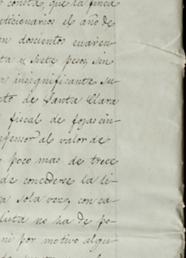 consta, que la finca
eticionarios el año de
on doscientos cuaren-
ta y siete pesos, sin
insignificante su-
to de Santa Clara
fiscal de fojas cin-
fensor al valor de
poco mas de trece
de concederse la li-
a sola vez, con ca-
lista no ha de pe-
ni por motivo algu-